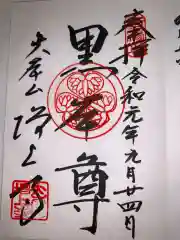 奉拝 令和元年九月廿四日
黒本尊
大本山 増上寺